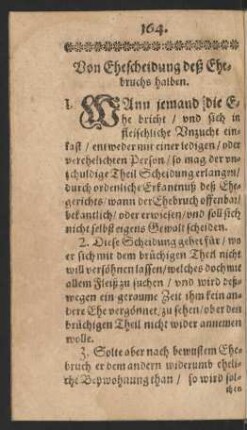 164.
Von Ehescheidung deß Ehe-
bruchs halben.
1. WAnn jemand die E-
he bricht / vnd sich in
fleischliche Vnzucht ein-
last / entweder mit einer ledigen / oder
verehelichten Person / so mag der vn-
schuldige Theil Scheidung erlangen /
durch ordenliche Erkantnuß deß Ehe-
gerichts / wann der Ehebruch offenbar /
bekantlich / oder erwiesen / vnd soll sich
nicht selbst eigens Gewalt scheiden.
2. Diese Scheidung gehet für / wo
er sich mit dem brüchigen Theil nicht
will versöhnen lassen / welches doch mit
allem Fleiß zu suchen / vnd wird deß-
wegen ein geraume Zeit ihm kein an-
dere Ehe vergönnet / zu sehen / ober den
brüchigen Theil nicht wider annemen
wolle.
3. Solte aber nach bewustem Ehe-
bruch er dem andern widerumb eheli-
che Beywohnung than / so wird sol-
chen